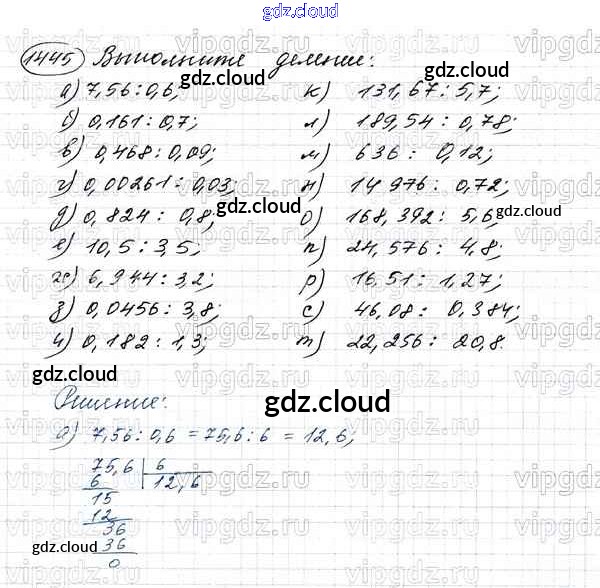 gdz.cloud
1445 Выполните деление:
а) 7,56 : 0,6; к) 131,67 : 5,7;
б) 0,161 : 0,7; л) 189,54 : 0,78;
в) 0,468 : 0,09; м) 636 : 0,12;
г) 0,00261 : 0,03; н) 14 976 : 0,72;
д) 0,824 : 0,8; о) 168,392 : 5,6;
е) 10,5 : 3,5; п) 24,576 : 4,8;
ж) 6,944 : 3,2; р) 16,51 : 1,27;
з) 0,0456 : 3,8; с) 46,08 : 0,384;
и) 0,182 : 1,3; т) 22,256 : 20,8.
Решение:
а) 7,56 : 0,6 = 75,6 : 6 = 12,6;
75,6 6
6 12,6
15
12
36
36
0